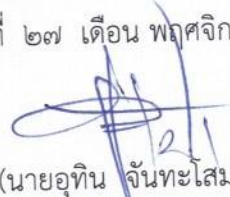 ที่ ๒๗ เดือน พฤศจิก
(นายอุทิน จันทะโสม